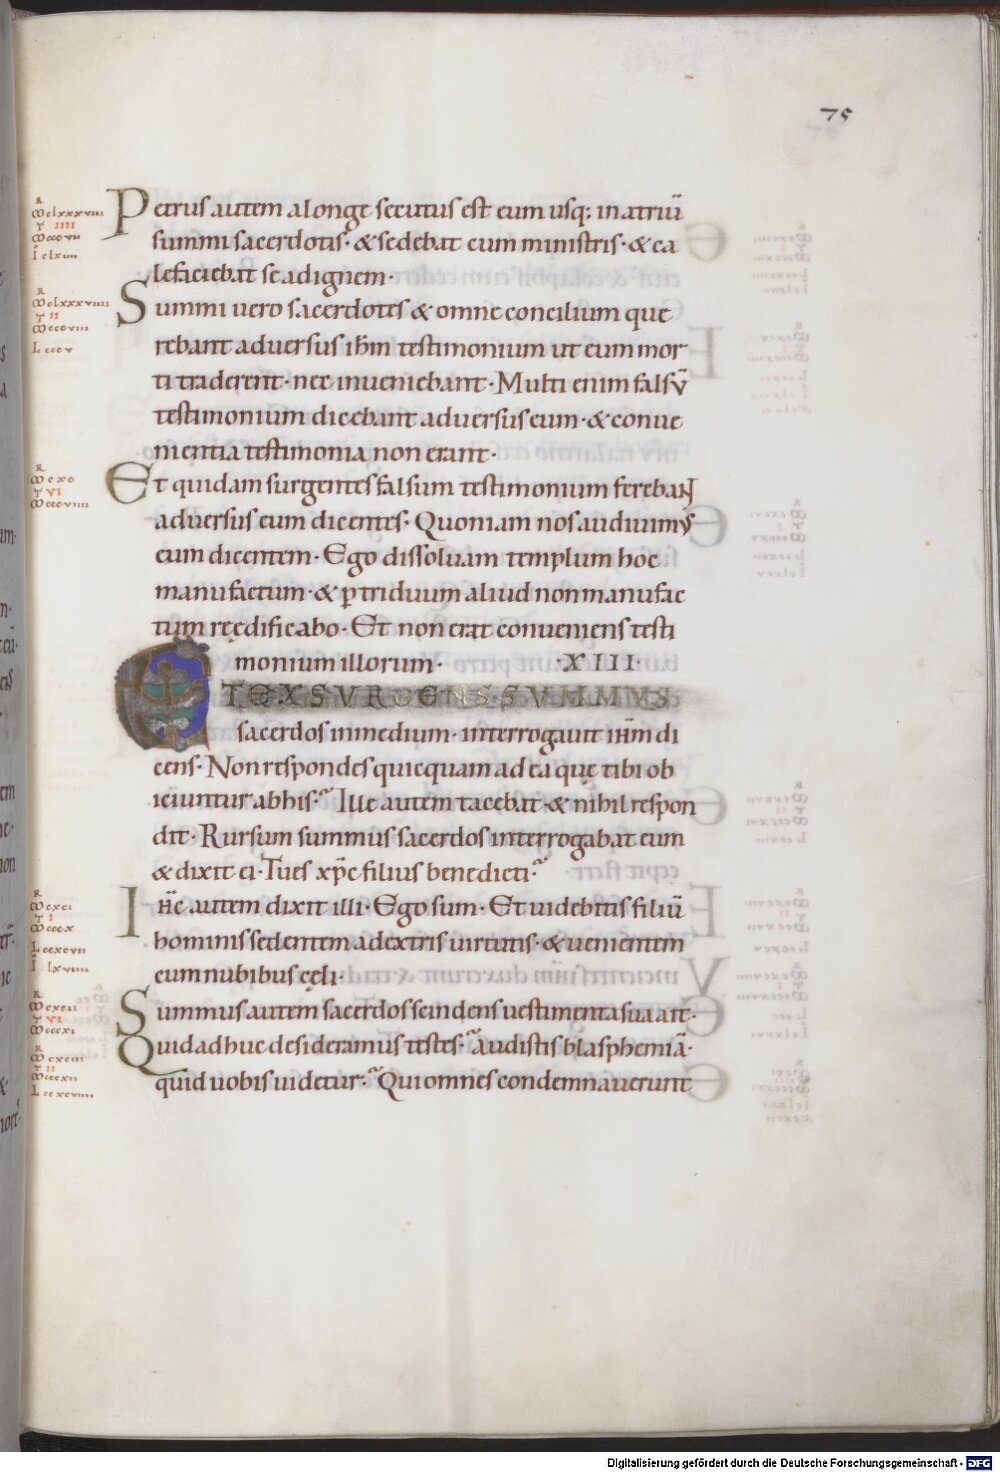 75
Petrus autem alonge secutus est eum usq; in atriū
summi sacerdotis· & sedebat cum ministris· & ca
lefaciebat se ad ignem·
Summi uero sacerdotes & omne concilium quę
rebant aduersus ihm̄ testimonium ut eum mor
ti traderent· nec inueniebant· Multi enim falsū
testimonium dicebant aduersus eum· & conue
nientia testimonia non erant·
Et quidam surgentes falsum testimonium ferebant
aduersus eum dicentes· Quoniam nos audiuimus
eum dicentem· Ego dissoluam templum hoc
manufactum· & p triduum aliud non manufac
tum reędificabo· Et non erat conueniens testi
monium illorum· ·XIII·
ET EXSVRGENS SVMMVS
sacerdos in medium· interrogauit ihm̄ di
cens· Non respondes quicquam ad ea quę tibi ob
iciuntur ab his· Ille autem tacebat· & nihil respon
dit· Rursum summus sacerdos interrogabat eum
& dixit ei· Tu es xp̄c filius benedicti·
Ihc̄ autem dixit illi· Ego sum· Et uidebitis filiū
hominis sedentem a dextris uirtutis· & uenientem
cum nubibus cęli·
Summus autem sacerdos scindens uestimenta sua ait·
Quid adhuc desideramus testes· Audistis blasphemiā·
quid uobis uidetur· Qui omnes condemnauerunt
Digitalisierung gefördert durch die Deutsche Forschungsgemeinschaft - DFG